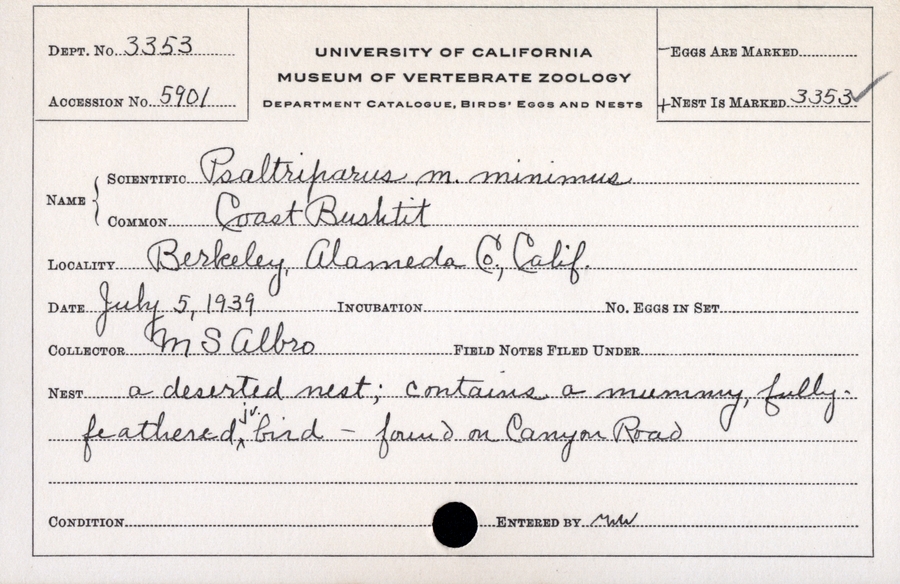 Dept. No. 3353
Accession No. 5901
UNIVERSITY OF CALIFORNIA
MUSEUM OF VERTEBRATE ZOOLOGY
Department Catalogue, Birds' Eggs and Nests
Eggs Are Marked
+Nest Is Marked 3353
Name
Scientific Psaltriparus m. minimus
Common Coast Bushtit
Locality Berkeley, Alameda Co., Calif.
Date July 5, 1939 Incubation No. Eggs in Set
Collector M S Albro Field Notes Filed Under
Nest a deserted nest; contains a mummy, fully-
feathered, juv. bird – found on Canyon Road
Condition Entered by